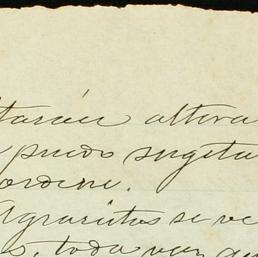 tarán altera
puedo sugeta
ordene.
Agraristas se ve
s, toda vez qu